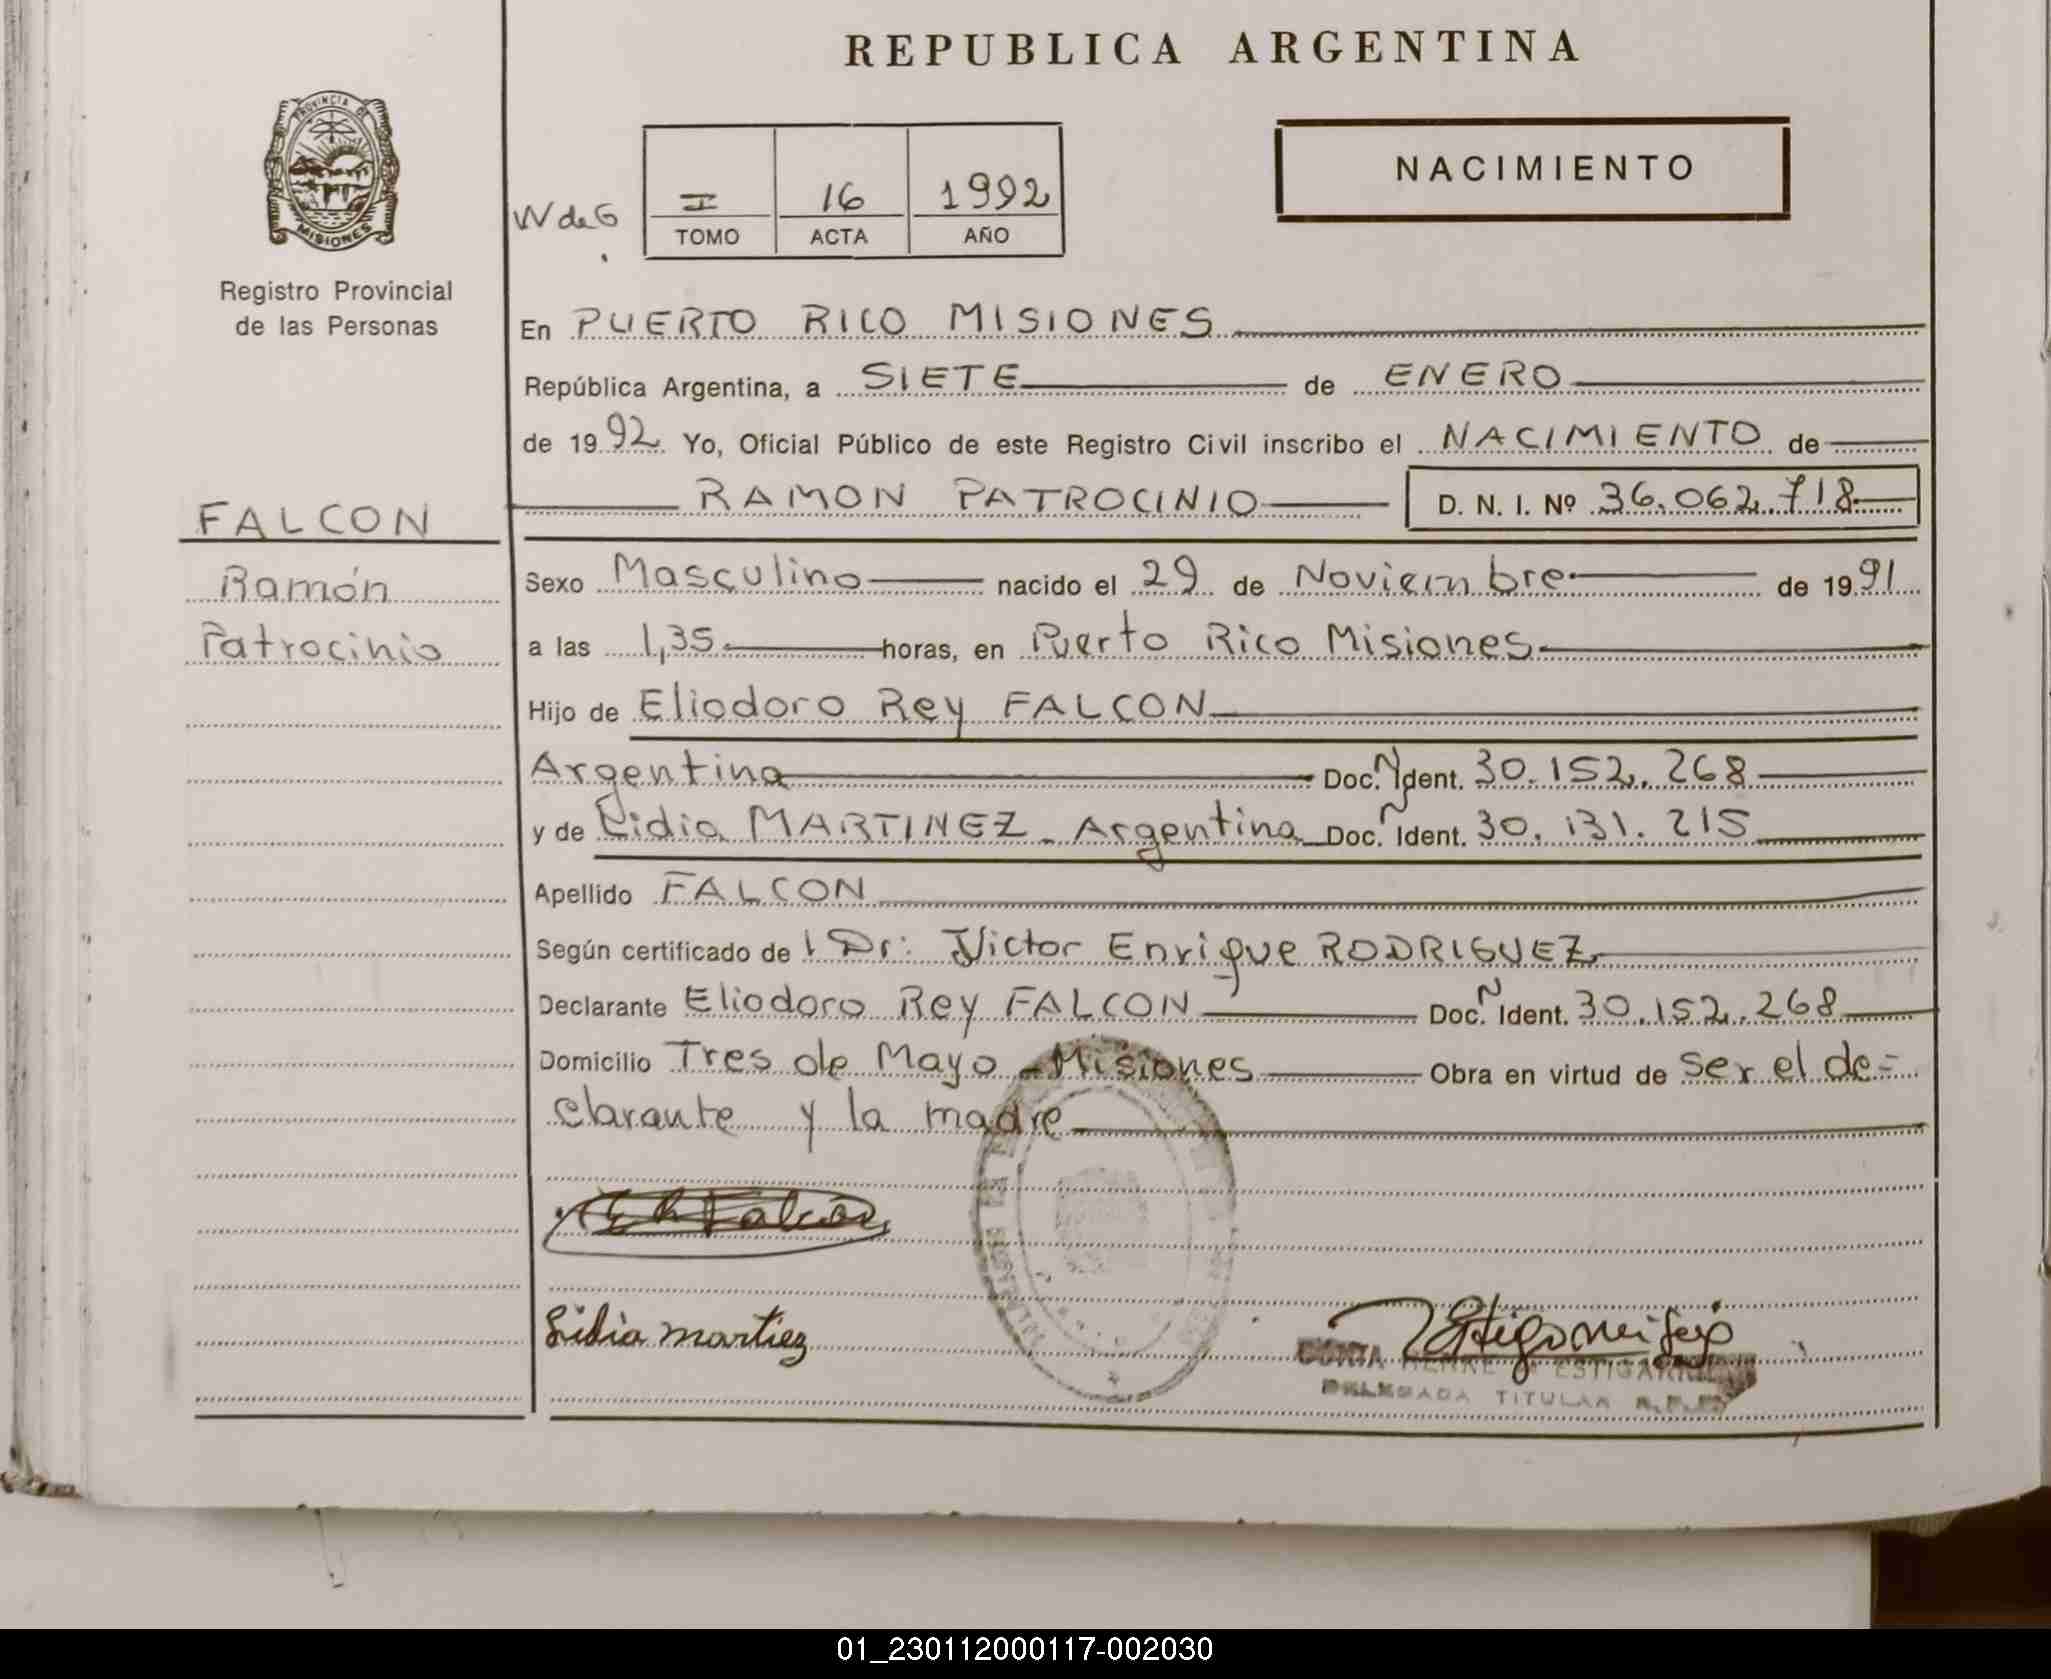 REPUBLICA ARGENTINA
PROVINCIA DE
MISIONES
Registro Provincial
de las Personas
W de G
I 16 1992
TOMO ACTA AÑO
NACIMIENTO
En PUERTO RICO MISIONES
República Argentina, a SIETE de ENERO
de 1992 Yo, Oficial Público de este Registro Civil inscribo el NACIMIENTO de
RAMON PATROCINIO D. N. I. Nº 36.062.718
FALCON
Ramón
Patrocinio
Sexo Masculino nacido el 29 de Noviembre de 1991
a las 1,35 horas, en Puerto Rico Misiones
Hijo de Eliodoro Rey FALCON
Argentina Doc. N Ident. 30.152.268
y de Lidia MARTINEZ - Argentina Doc. N Ident. 30.131.215
Apellido FALCON
Según certificado de l Dr: Victor Enrique RODRIGUEZ
Declarante Eliodoro Rey FALCON Doc. N Ident. 30.152.268
Domicilio Tres de Mayo - Misiones Obra en virtud de ser el de=
clarante y la madre
Falcón
Lidia martiez
DELEGADA TITULAR R.P.P.
01_230112000117-002030